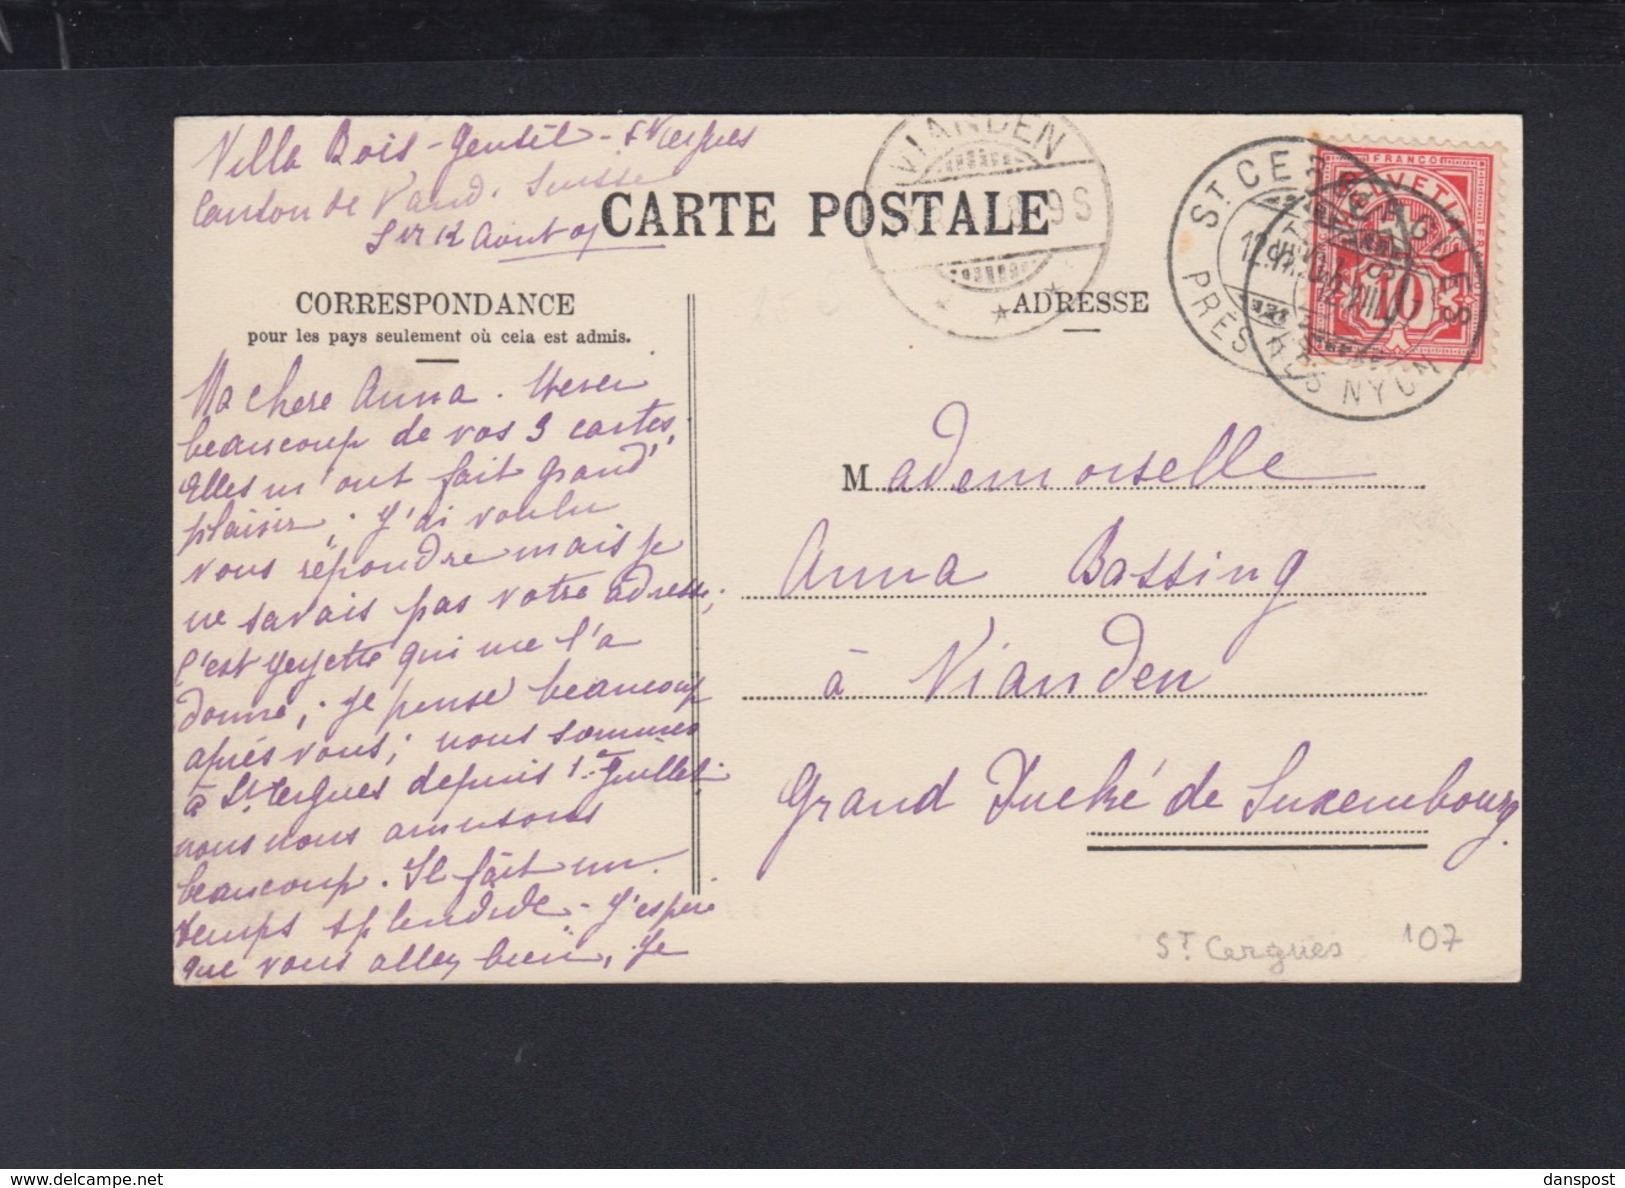 Villa Bois-Gentil - St Cergues
Canton de Vaud. Suisse
CARTE POSTALE
le 12 Aout 07
CORRESPONDANCE
pour les pays seulement où cela est admis.
ADRESSE
Ma chere Anna. Merci
beaucoup de vos 3 cartes,
Elles m'ont fait grand
plaisir; j'ai voulu
vous répondre mais je
ne savais pas votre adresse;
c'est qui me l'a
donné; je pense beaucoup
après vous; nous sommes
à St. Cergues depuis 1er Juillet;
nous nous amusons
beaucoup. Il fait un
temps splendide - J'espère
que vous allez bien, je
Mademoiselle
Anna Bassing
à Vianden
Grand Duché de Luxembourg.
VIANDEN
ST. CERGUES
PRÈS NYON
FRANCO
HELVETIA
10
St Cergues 107
danspost